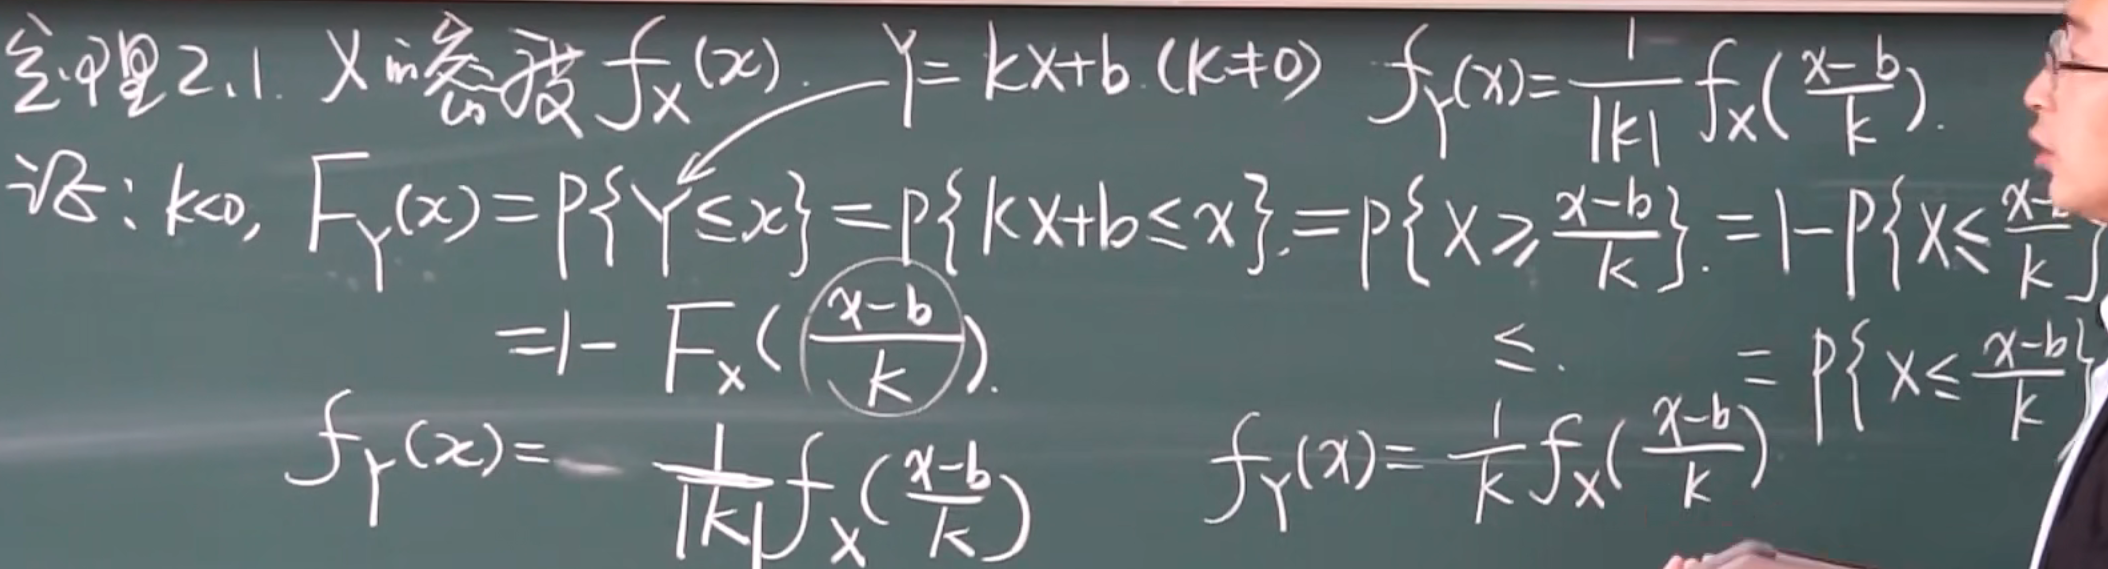 定理2.1. X的密度 f_X(x). Y=kX+b.(k≠0) f_Y(x)=\frac{1}{|k|}f_X(\frac{x-b}{k}).
证: k<0, F_Y(x)=P{Y≤x}=P{kX+b≤x}.=P{X≥\frac{x-b}{k}}.=1-P{X≤\frac{x-b}{k}}
=1-F_X(\frac{x-b}{k}). ≤. =P{X≤\frac{x-b}{k}}
f_Y(x)= \frac{1}{|k|}f_X(\frac{x-b}{k}) f_Y(x)=\frac{1}{k}f_X(\frac{x-b}{k})